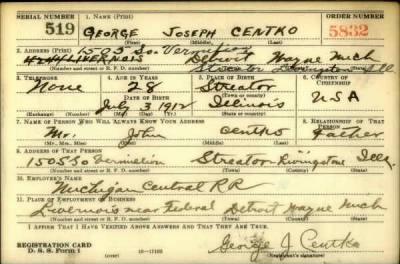 SERIAL NUMBER 1. NAME (Print) ORDER NUMBER
519 GEORGE JOSEPH CENTKO 5832
(First) (Middle) (Last)
2. ADDRESS (Print) 1505 So. Vermilion
4244 LIVERNOIS Detroit Wayne Mich
Streator Livingston Ill
(Number and street or R. F. D. number) (Town) (County) (State)
3. TELEPHONE 4. AGE IN YEARS 5. PLACE OF BIRTH 6. COUNTRY OF CITIZENSHIP
None 28 Streator
DATE OF BIRTH (Town or county)
July 3 1912 Illinois USA
(Exchange) (Number) (Mo.) (Day) (Yr.) (State or country)
7. NAME OF PERSON WHO WILL ALWAYS KNOW YOUR ADDRESS 8. RELATIONSHIP OF THAT PERSON
Mr. John Centko Father
(Mr., Mrs., Miss) (First) (Middle) (Last)
9. ADDRESS OF THAT PERSON
1505 So Vermilion Streator Livingstone Ill.
(Number and street or R. F. D. number) (Town) (County) (State)
10. EMPLOYER'S NAME
Michigan Central RR
11. PLACE OF EMPLOYMENT OR BUSINESS
Livernois near Federal Detroit Wayne Mich
(Number and street or R. F. D. number) (Town) (County) (State)
I AFFIRM THAT I HAVE VERIFIED ABOVE ANSWERS AND THAT THEY ARE TRUE.
REGISTRATION CARD George J. Centko
D. S. S. Form 1 (over) 16-17105 (Registrant's signature)